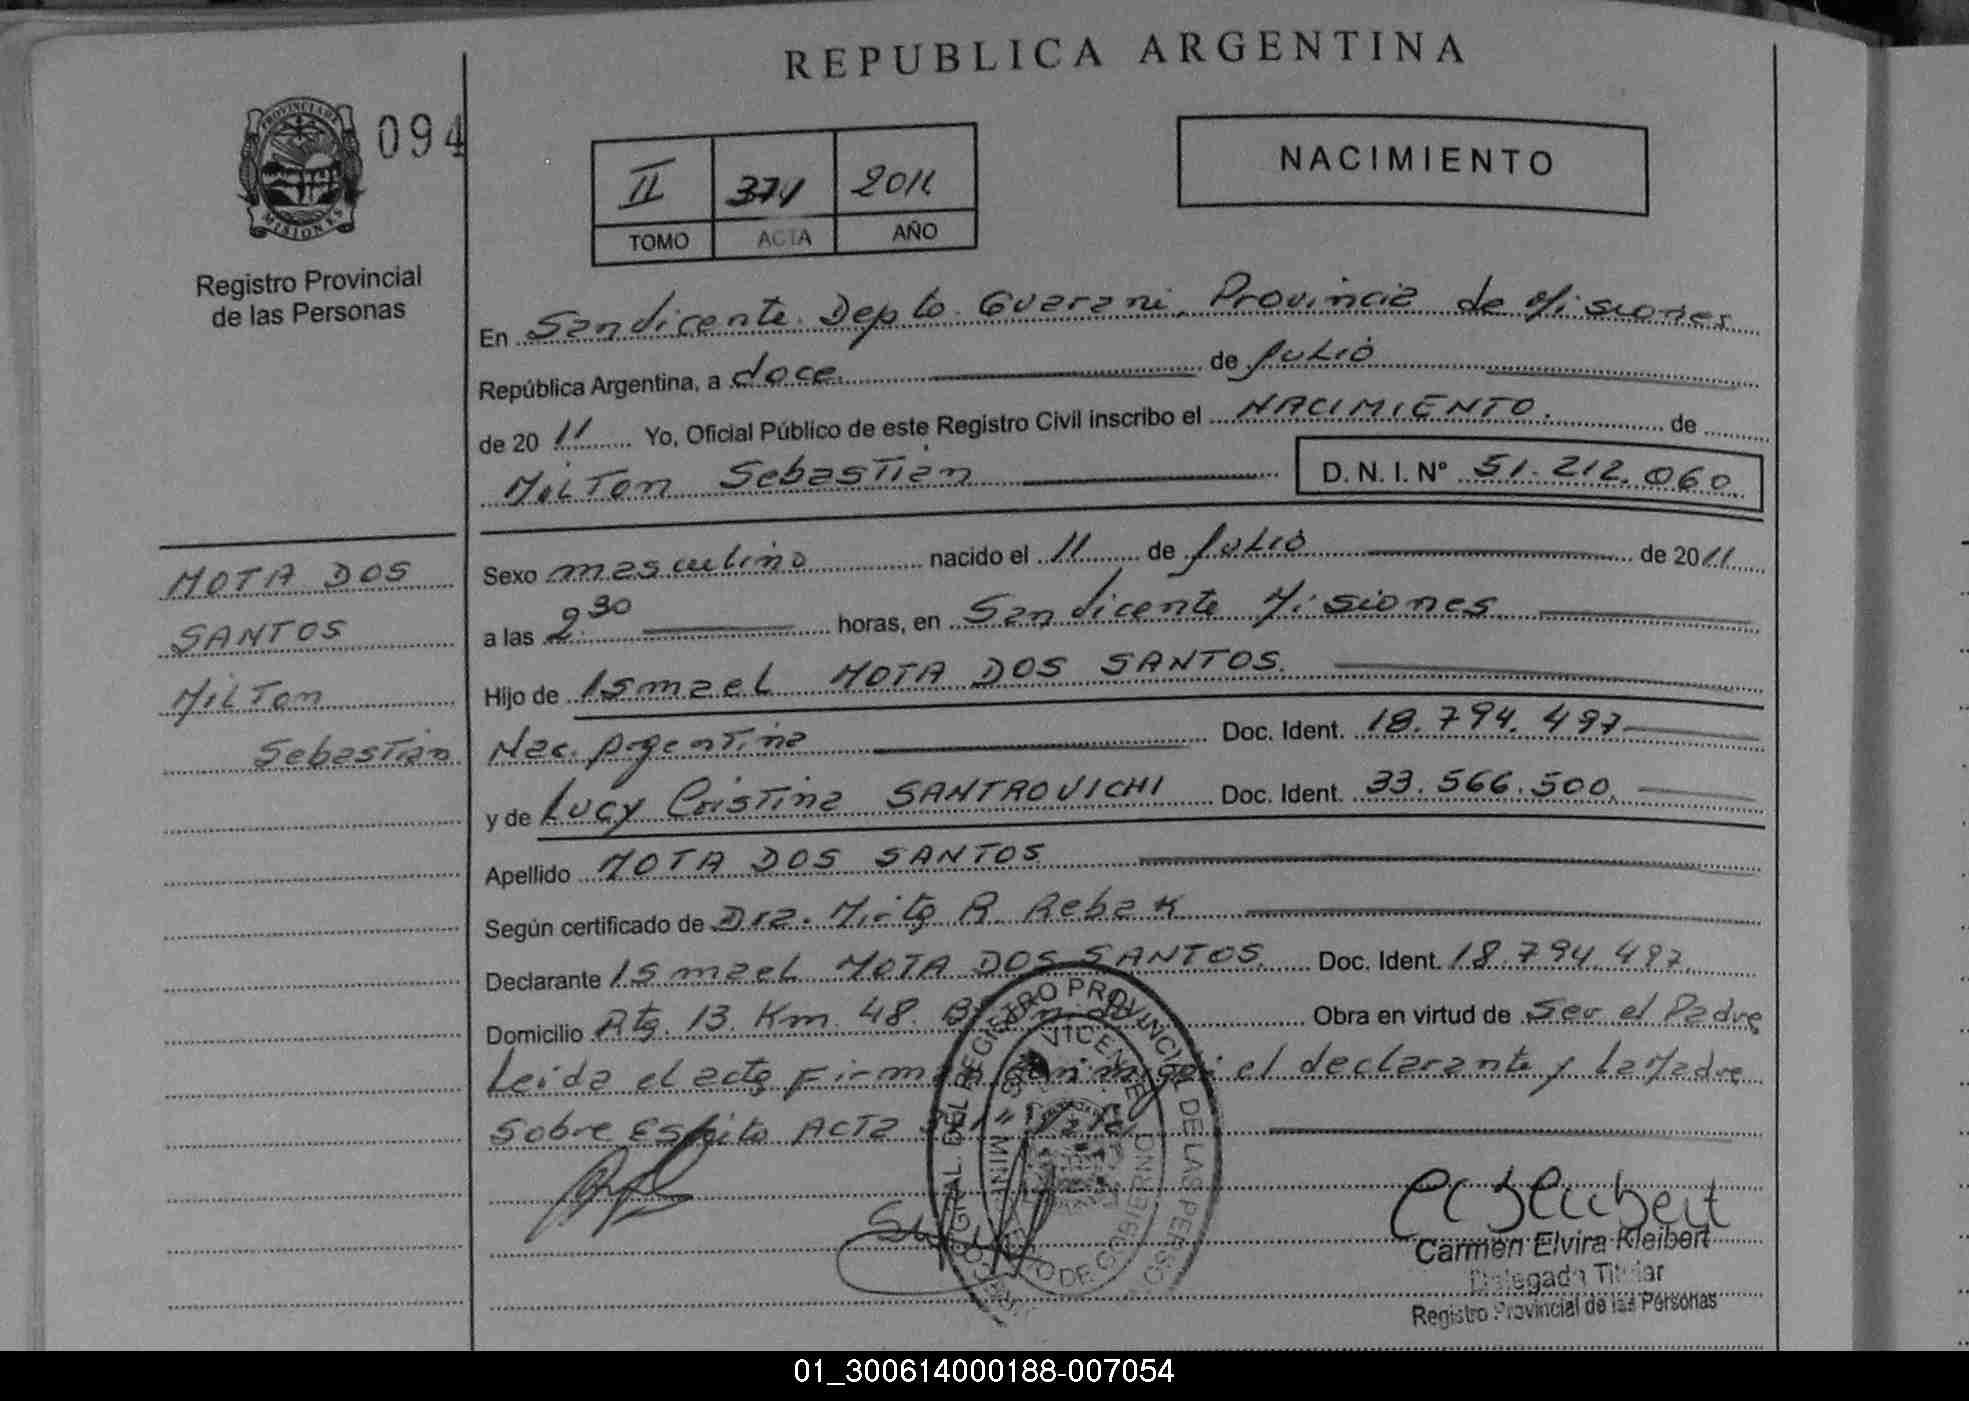 REPUBLICA ARGENTINA
PROVINCIA DE
MISIONES
094
Registro Provincial
de las Personas
II 371 2011
TOMO ACTA AÑO
NACIMIENTO
En San Vicente Depto Guarani, Provincia de Misiones
República Argentina, a doce de Julio
de 20 11 Yo, Oficial Público de este Registro Civil inscribo el NACIMIENTO. de
Milton Sebastián D. N. I. Nº 51.212.060
MOTA DOS
SANTOS
Milton
Sebastián
Sexo masculino nacido el 11 de Julio de 2011
a las 2.30 horas, en San Vicente Misiones
Hijo de Ismael MOTA DOS SANTOS.
Nac. Argentina Doc. Ident. 18.794.497
y de Lucy Cristina SANTROVICHI Doc. Ident. 33.566.500
Apellido MOTA DOS SANTOS
Según certificado de Dra. Mirta R. Rebak
Declarante Ismael MOTA DOS SANTOS. Doc. Ident. 18.794.497
Domicilio Rta. 13. Km. 48. Obra en virtud de Ser el Padre
Leida el acta el declarante y la Madre
Sobre Escrito ACTA
REGISTRO PROVINCIAL DE LAS PERSONAS
SAN VICENTE
DE GOBIERNO
Carmen Elvira Kleibert
Delegada Titular
Registro Provincial de las Personas
01_300614000188-007054